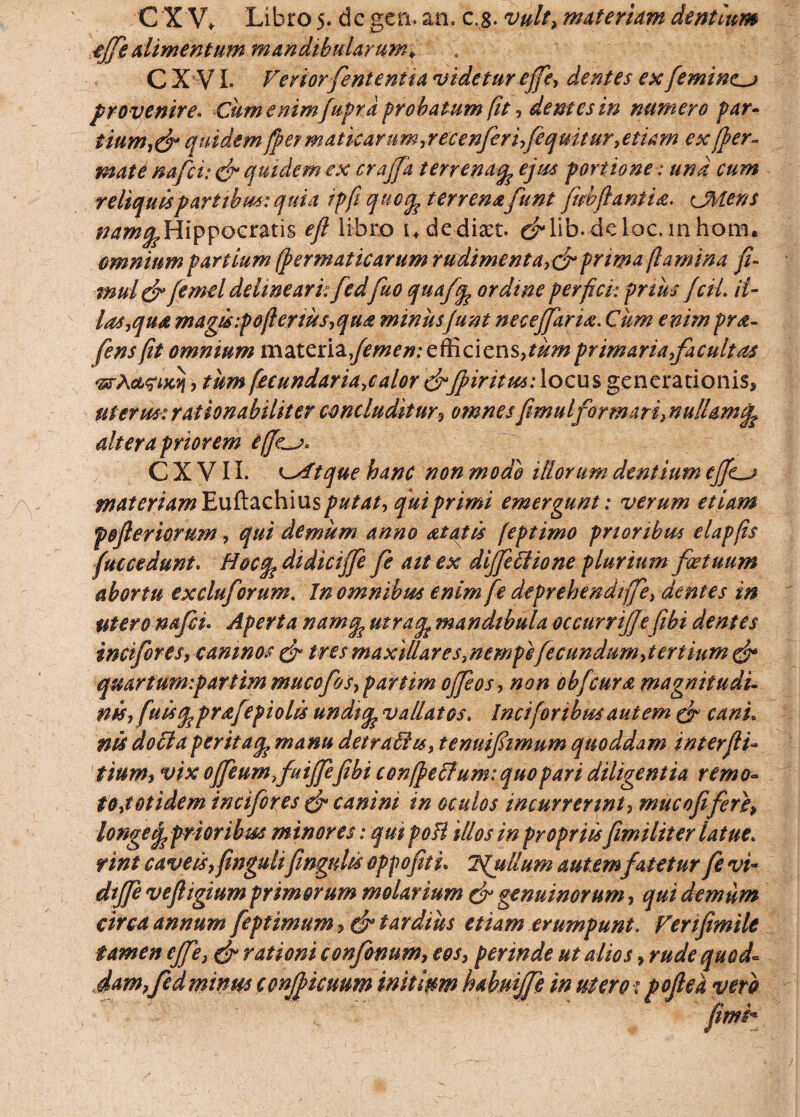 CXV. Libro 5. de gen. an. c.8. vult, materiam dentium
esse alimentum mandibularum.
CXVI. Verior sententia videtur esse, dentes ex semine
provenire. Cum enim supra probatum sit, dentes in numero par-
tium, & quidem spermaticarum, recenseri, sequitur, etiam ex sper-
mate nasci: & quidem ex crassa terrenaq; ejus portione: unà cum
reliquis partibus: quia ipsi quoq; terrenæ sunt substantiæ. Mens
namq; Hippocratis est libro 1. de diæt. & lib. de loc. in hom.
omnium partium spermaticarum rudimenta, & prima stamina si-
mul & semel delineari: sed suo quasq; ordine perfici: prius scil. il-
las, quæ magis: posterius, quæ minus sunt necessariæ. Cum enim præ-
sens sit omnium materia, semen: efficiens, tùm primaria, facultas
πλαςικὴ, tùm secundaria, calor & spiritus: locus generationis,
uterus: rationabiliter concluditur, omnes simul formari, nullamq;
altera priorem esse.
CXVII. Atque hanc non modò illorum dentium esse
materiam Eustachius putat, qui primi emergunt: verum etiam
posteriorum, qui demùm anno ætatis septimo prioribus elapsis
succedunt. Hocq; didicisse se ait ex dissectione plurium fœtuum
abortu exclusorum. In omnibus enim se deprehendisse, dentes in
utero nasci. Aperta namq; utraq; mandibula occurrisse sibi dentes
incisores, caninos & tres maxillares, nempè secundum, tertium &
quartum: partim mucosos, partim osseos, non obscuræ magnitudi-
nis, suisq; præsepiolis undiq; vallatos. Incisoribus autem & cani-
nis docta peritaq; manu detractis, tenuissimum quoddam intersti-
tium, vix osseum, fuisse sibi conspectum: quo pari diligentia remo-
to, totidem incisores & canini in oculos incurrerint, mucosi ferè,
longeq; prioribus minores: qui post illos in propriis similiter latue-
rint caveis, singuli singulis oppositi. Nullum autem fatetur se vi-
disse vestigium primorum molarium & genuinorum, qui demùm
circa annum septimum, & tardius etiam erumpunt. Verisimile
tamen esse, & rationi consonum, eos, perinde ut alios, rude quod-
dam, sed minus conspicuum initium habuisse in utero: posteà verò
simi-